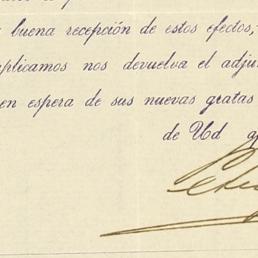 buena recepción de estos efectos,
plicamos nos devuelva el adju
en espera de sus nuevas gratas
de Ud